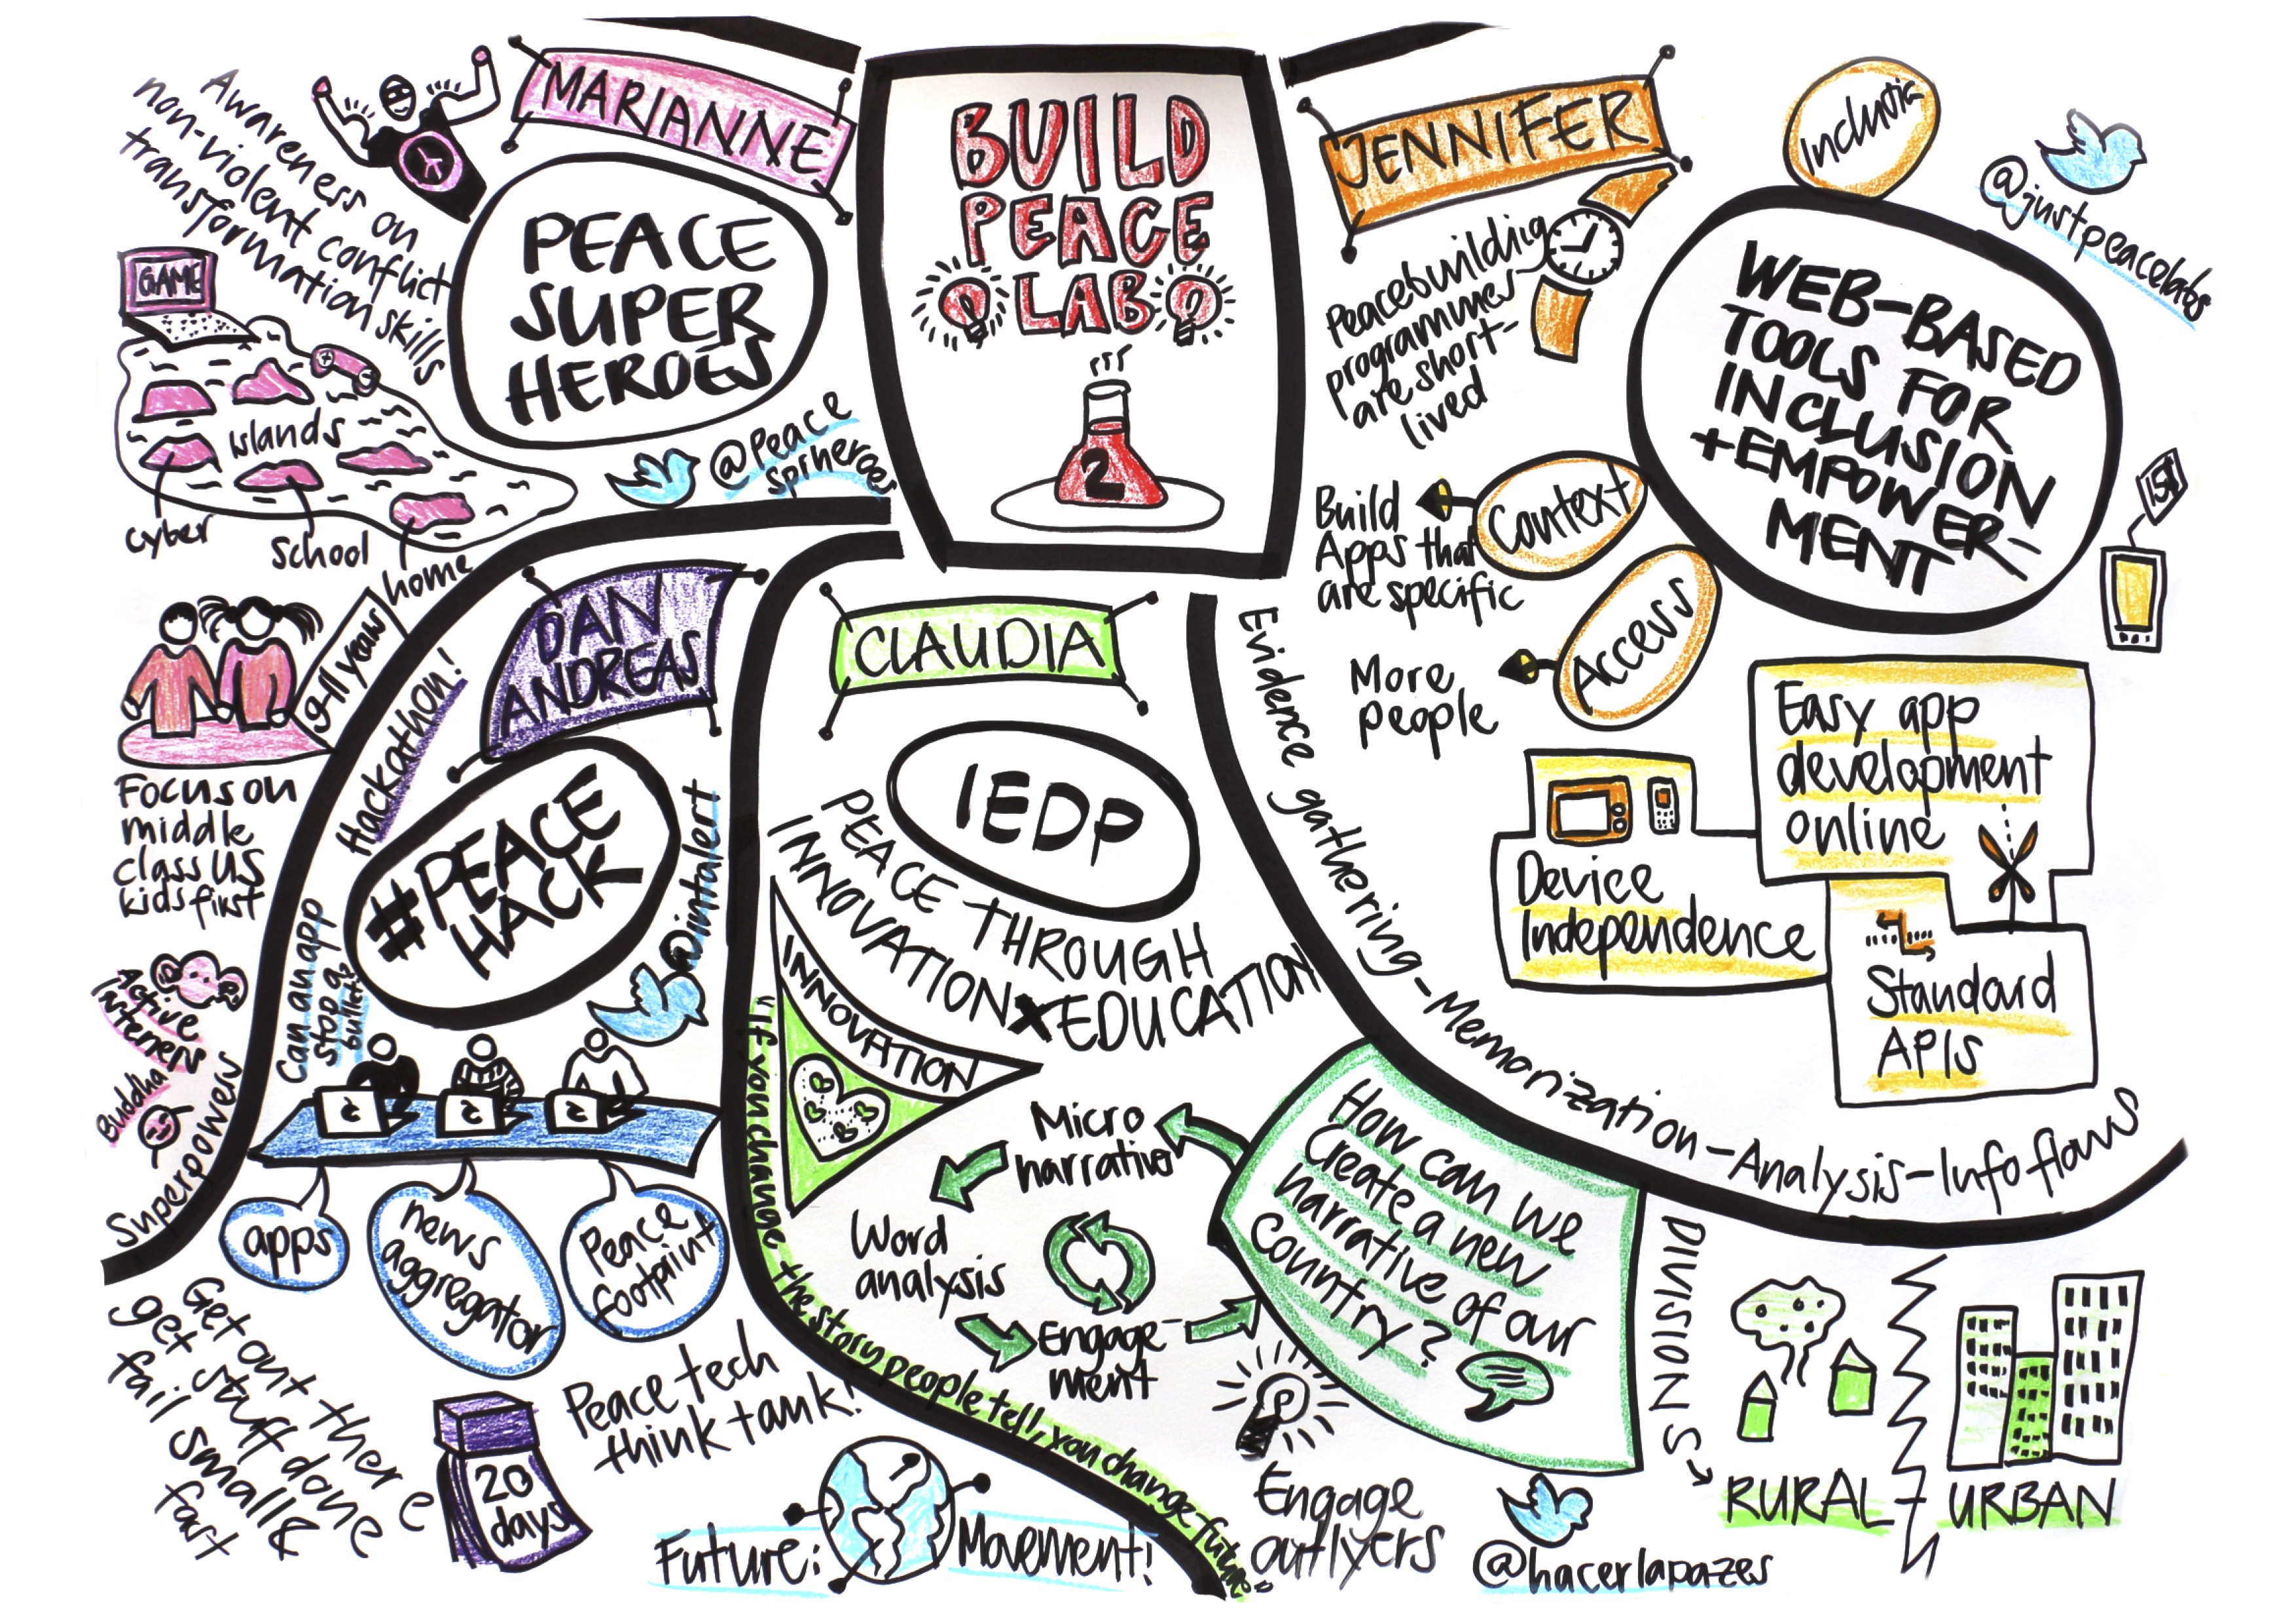 BUILD
PEACE
LAB
2
MARIANNE
PEACE
SUPER
HEROES
@Peace
Sprheroes
Awareness on
non-violent conflict
transformation skills
GAME
islands
cyber
School
home
9-11 years
Focus on
middle
class US
kids first
Active
listeners
Buddha
Superpowers
DAN
ANDREAS
Hackathon!
#PEACE
HACK
@intalert
Can an app
stop a
bullet?
apps
news
aggregator
Peace
footprint
Get out there
get stuff done
fail small &
fast
20
days
Peace tech
think tank!
Future:
Movement!
CLAUDIA
IEDP
PEACE THROUGH
INNOVATION x EDUCATION
INNOVATION
"If you change the story people tell, you change future"
Micro
narrative
Word
analysis
Engage-
ment
How can we
create a new
narrative of our
country?
Engage
outlyers
@hacerlapazes
DIVISIONS
RURAL
URBAN
JENNIFER
Peacebuilding
programmes
are short-
lived
Inclusion
@justpeacelabs
WEB-BASED
TOOLS FOR
INCLUSION
+EMPOWER-
MENT
Context
Build
Apps that
are specific
Access
More
people
Easy app
development
online
Device
Independence
Standard
APIs
Evidence gathering - Memorization - Analysis - Info flows